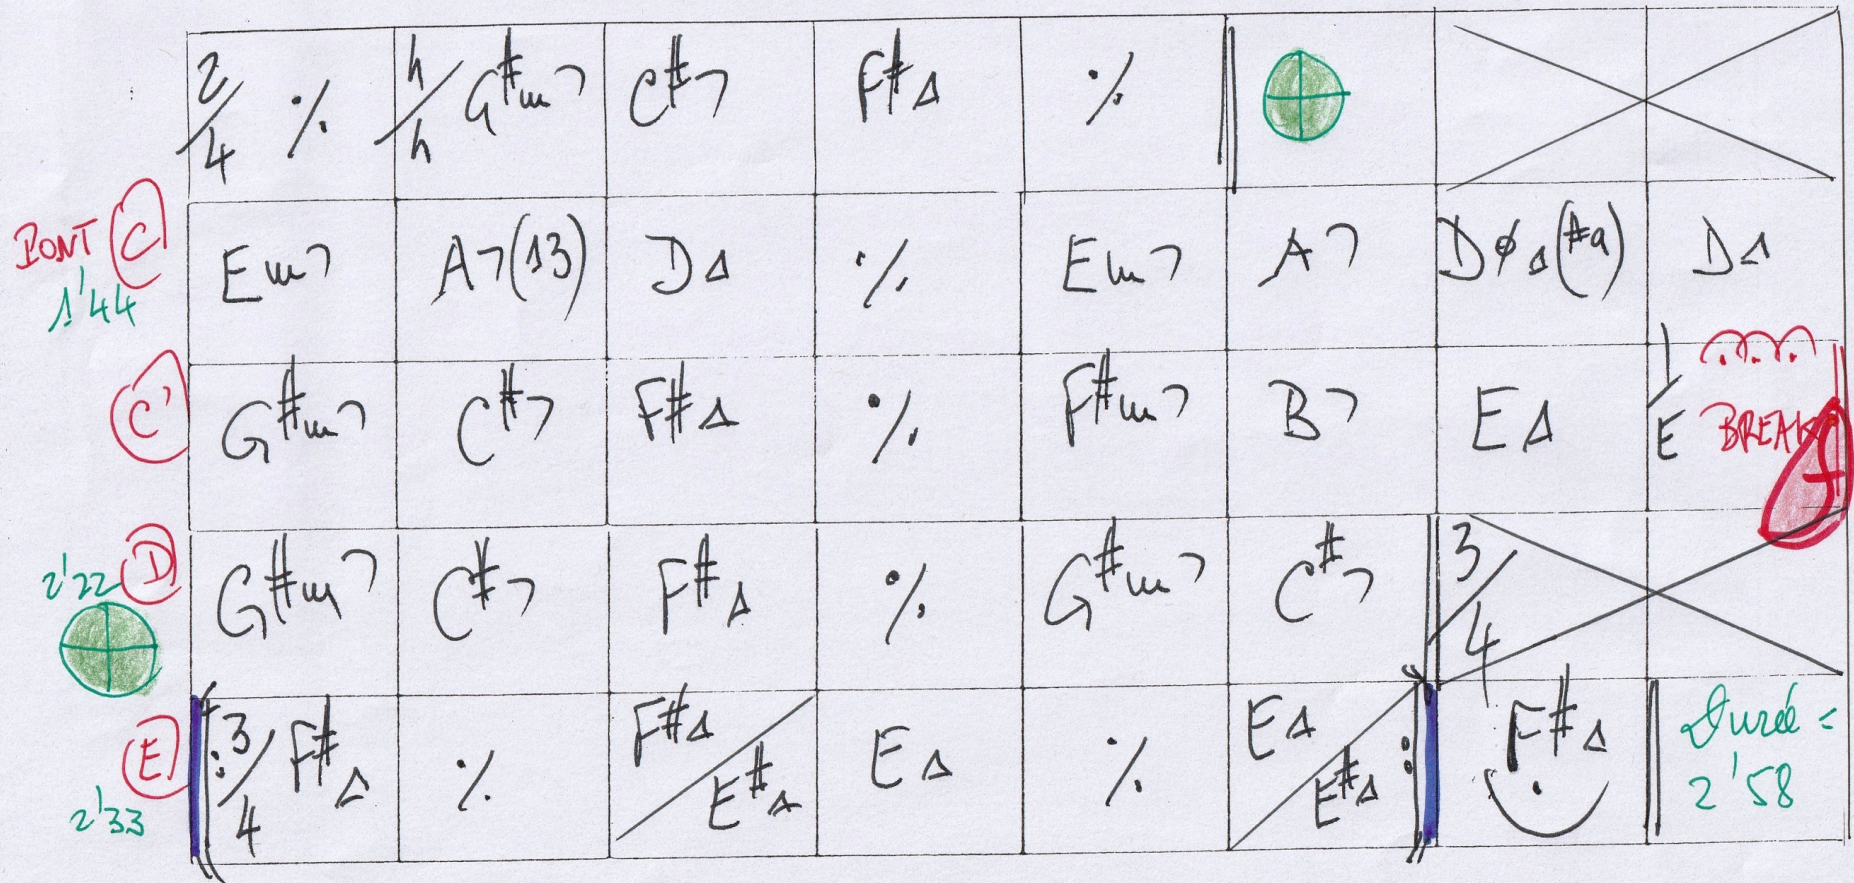 2/4 % 4/4 G#m7 C#7 F#Δ %
PONT C 1'44 Em7 A7(13) DΔ % Em7 A7 DøΔ(#9) DΔ
C' G#m7 C#7 F#Δ % F#m7 B7 EΔ 1/E BREAK
2'22 D G#m7 C#7 F#Δ % G#m7 C#7 3/4
E 2'33 3/4 F#Δ % F#Δ/E#Δ EΔ % EΔ/E#Δ F#Δ Durée = 2'58